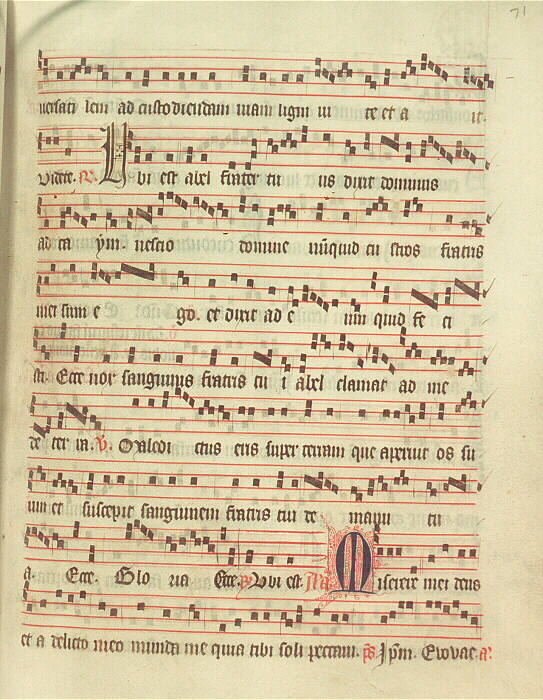 71
uersati sem ad custodiendam uiam ligni ui te et a it
videte. R. Ubi est abel frater tu us dixit dominus
ad ca ym. nescio domine nũquid cu stos fratris
mei sum e go. et dixit ad e um quid fe ci
sti. Ecce uox sanguinis fratris tu i abel clamat ad me
de ter ra. V. Maledi ctus eris super terram que aperuit os su
um et suscepit sanguinem fratris tui de manu tu
a. Ecce. Glo ria Ecce. Ubi est Miserere mei deus
et a delicto meo munda me quia tibi soli peccaui. ps. Ipm. Euouae. a.